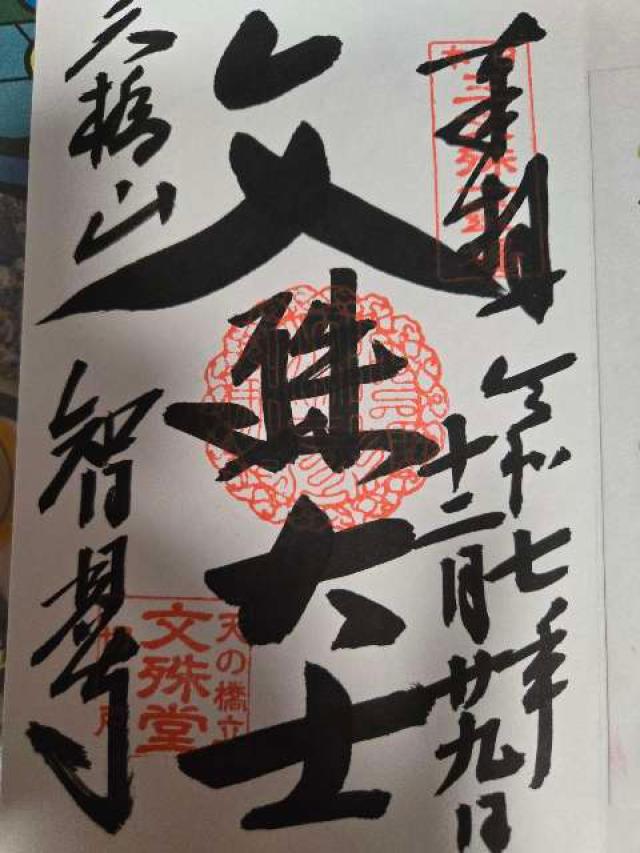 奉拝
令和七年
十二月廿九日
文殊大士
天橋山
智恩寺
天の橋立
文殊堂